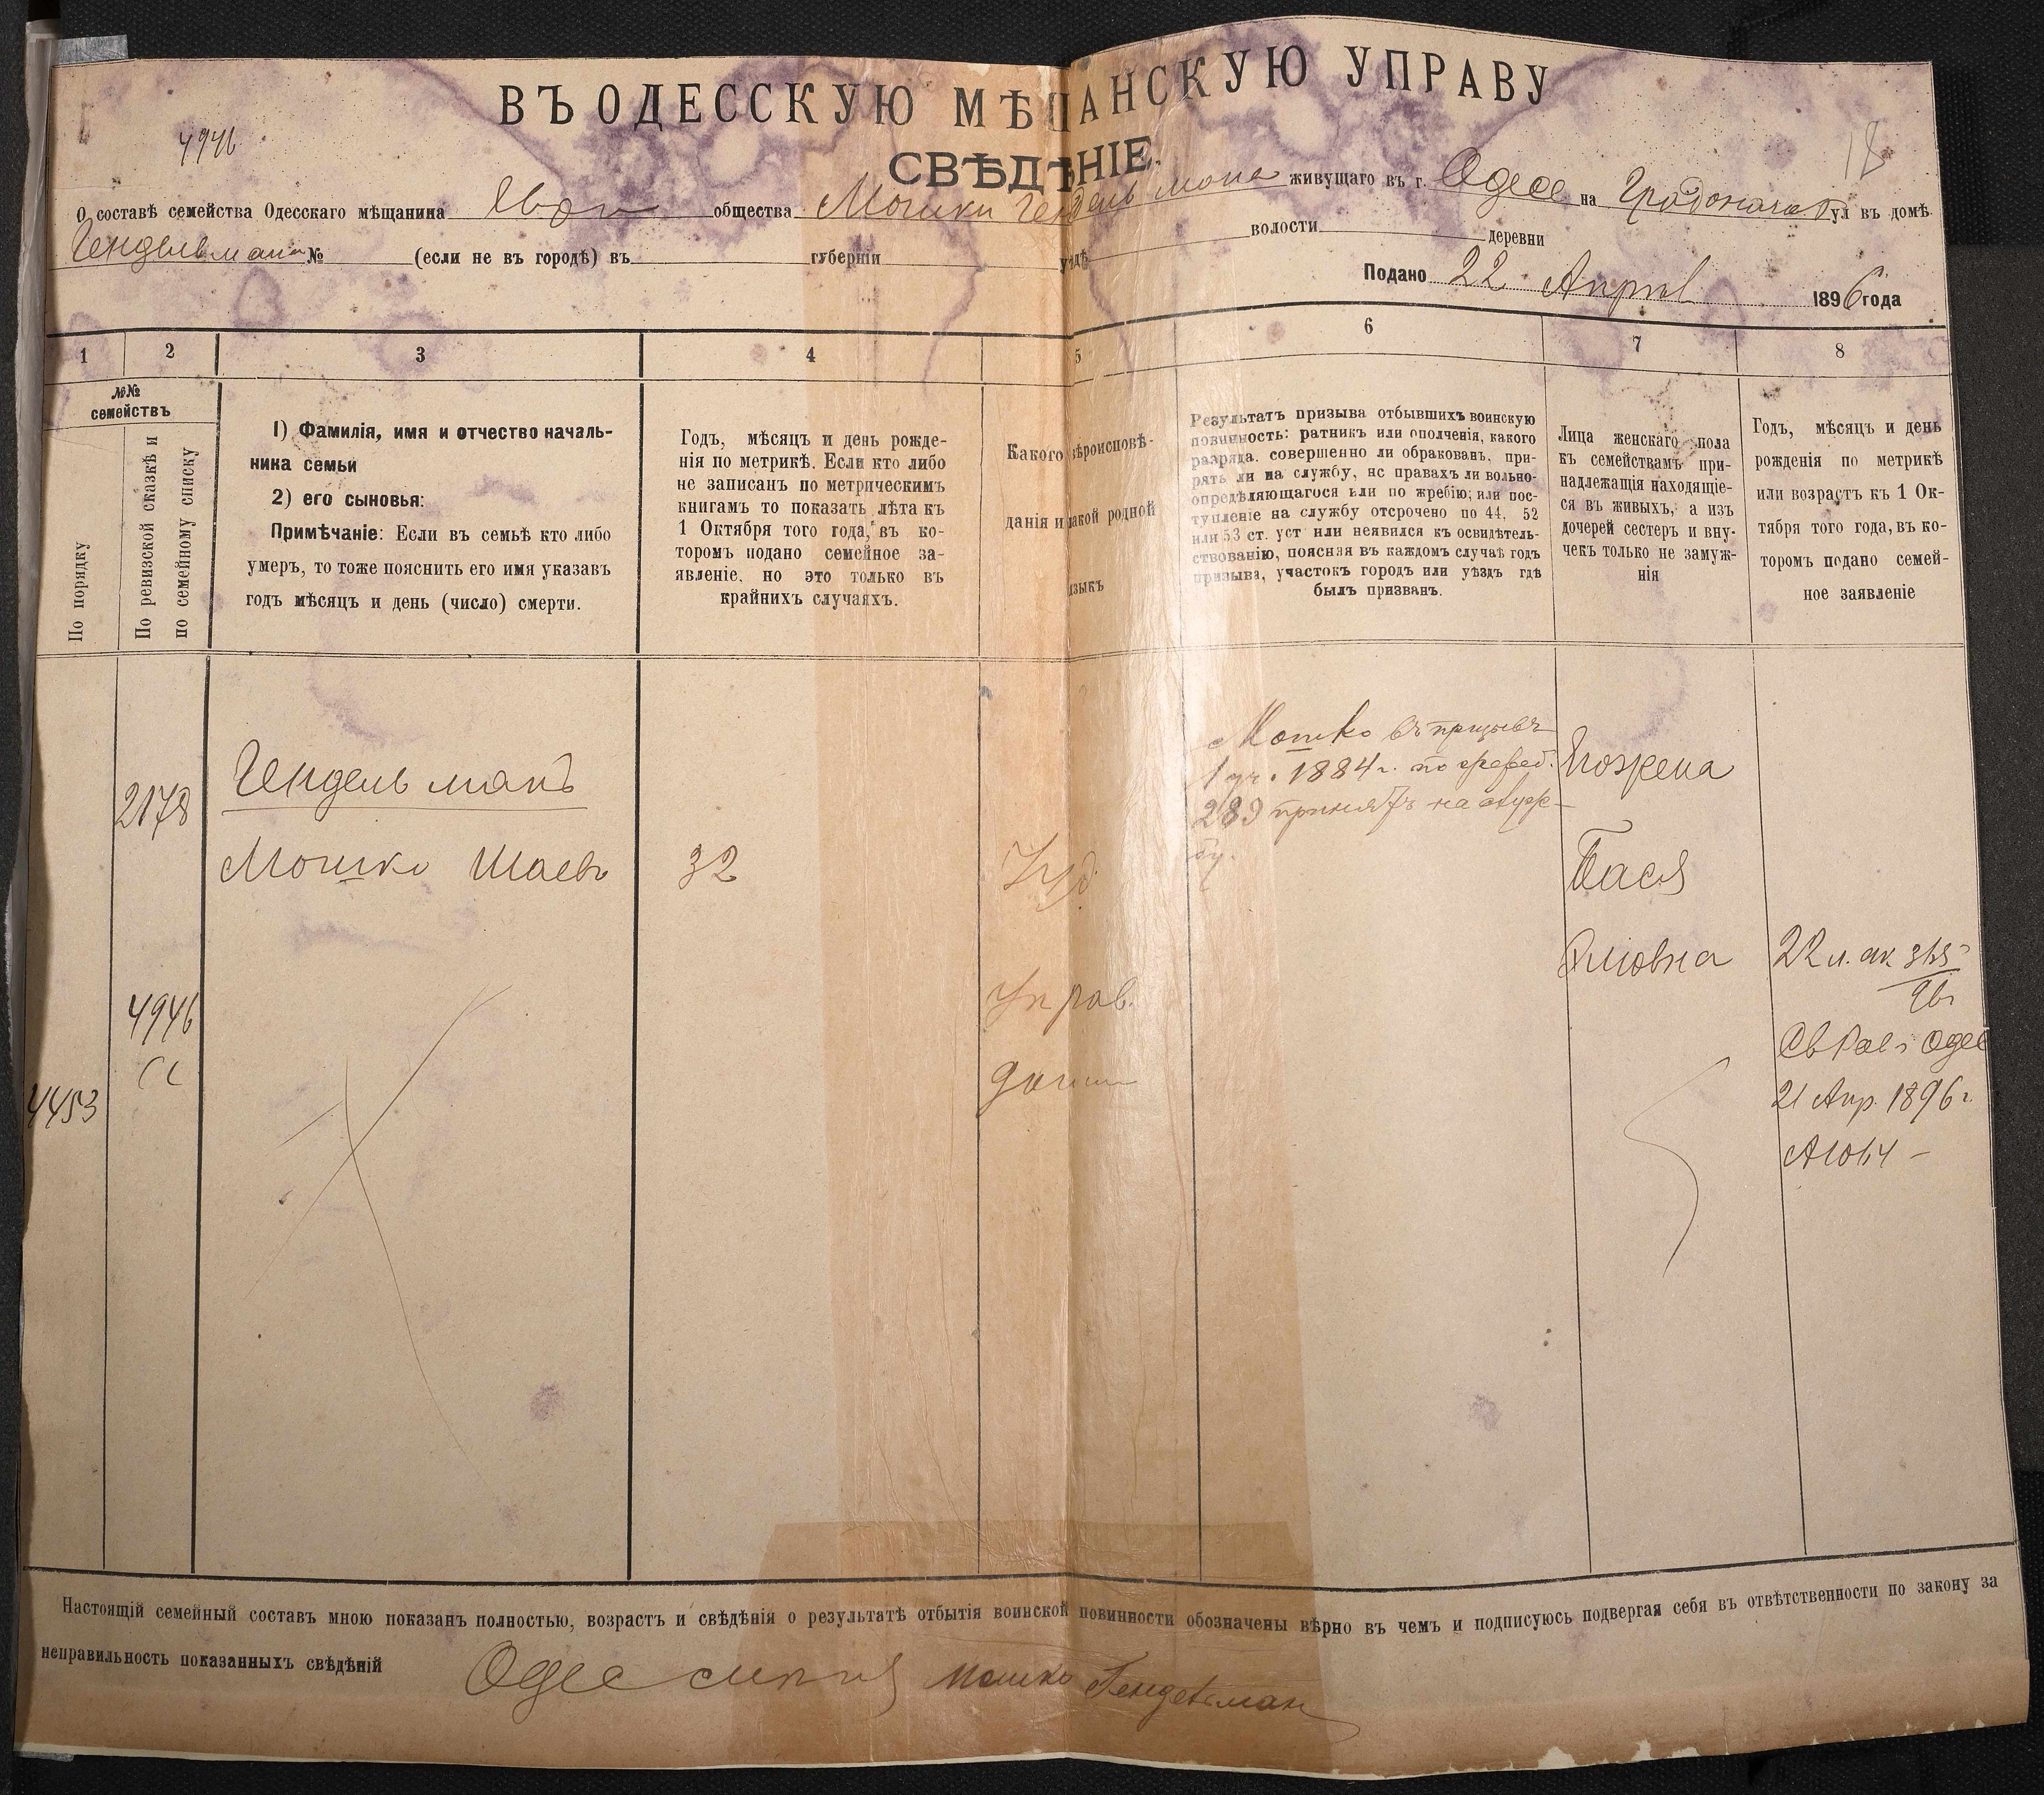 ВЪ ОДЕССКУЮ МѢЩАНСКУЮ УПРАВУ
4946
18
СВѢДѢНІЕ.
О составѣ семейства Одесскаго мѣщанина общества Мошки Гендельмана живущаго въ г. Одесѣ на Градонача ул въ домѣ
Гендельмана № (если не въ городѣ) въ губерніи уѣздѣ волости деревни
Подано 22 Апрѣл 1896 года
1 2 3 4 5 6 7 8
№№ семействъ
По порядку
По ревизской сказкѣ и по семейному списку
1) Фамилія, имя и отчество началь-
ника семьи
2) его сыновья:
Примѣчаніе: Если въ семьѣ кто либо
умеръ, то тоже пояснить его имя указавъ
годъ мѣсяцъ и день (число) смерти.
Годъ, мѣсяцъ и день рожде-
нія по метрикѣ. Если кто либо
не записанъ по метрическимъ
книгамъ то показать лѣта къ
1 Октября того года, въ ко-
торомъ подано семейное за-
явленіе, но это только въ
крайнихъ случаяхъ.
Какого вѣроисповѣ-
данія и какой родной
языкъ
Результатъ призыва отбывшихъ воинскую
повинность: ратникъ или ополченія, какого
разряда. совершенно ли обракованъ, при-
рятъ ли на службу, нс правахъ ли вольно-
опредѣляющагося или по жребію; или пос-
тупленіе на службу отсрочено по 44, 52
или 53 ст. уст или неявился къ освидѣтель-
ствованію, поясняя въ каждомъ случаѣ годъ
призыва, участокъ городъ или уѣздъ гдѣ
былъ призванъ.
Лица женскаго пола
къ семействамъ при-
надлежащія находящіе-
ся въ живыхъ, а изъ
дочерей сестеръ и вну-
чекъ только не замуж-
нія
Годъ, мѣсяцъ и день
рожденія по метрикѣ
или возрастъ къ 1 Ок-
тября того года, въ ко-
торомъ подано семей-
ное заявленіе
Мошко въ призывъ
1 уч. 1884 г. по жреб.
289 принятъ на служ-
бу.
2178
Гендельманъ
Мошко Шаевъ
32
Іуд.
жена
Бася
22 л.
4946
4453
21 Апр. 1896 г.
Настоящій семейный составъ мною показанъ полностью, возрастъ и свѣдѣнія о результатѣ отбытія воинской повинности обозначены вѣрно въ чемъ и подписуюсь подвергая себя въ отвѣтственности по закону за
неправильность показанныхъ свѣдѣній
Мошко Гендельман